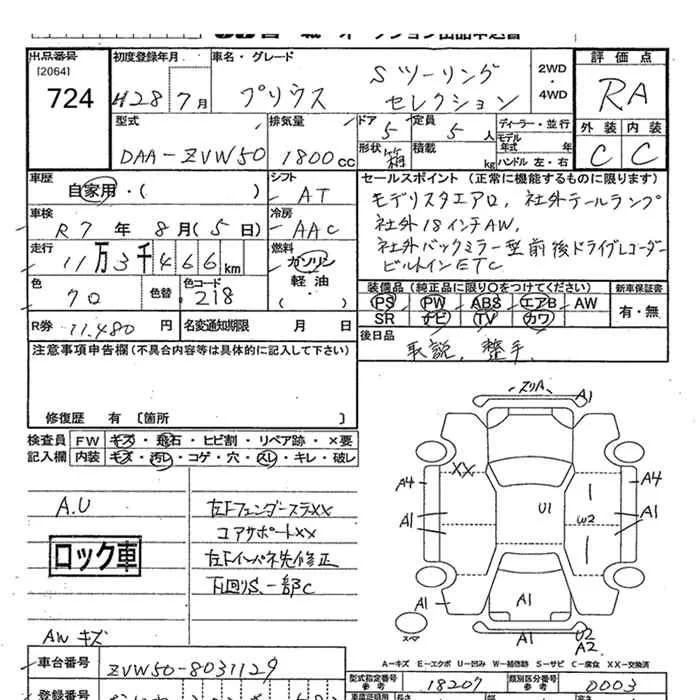 出品番号 初度登録年月 車名・グレード 評価点
[2064]
724
H28年7月
プリウス
Sツーリング
セレクション
2WD・4WD
RA
外装 内装
C C
型式 排気量 ドア 定員 ディーラー・並行
DAA-ZVW50 1800cc 5 5人 モデル年式 年
形状 箱 積載 kg ハンドル 左・右
車歴 シフト セールスポイント (正常に機能するものに限ります)
自家用・( ) AT
モデリスタエアロ, 社外テールランプ
社外18インチAW,
社外バックミラー型前後ドライブレコーダー
ビルトインETC
車検 冷房
R7年8月(5日) AAC
走行 燃料
11万3千466km ガソリン・軽油・( )
色 色替 色コード
70 218
装備品 (純正品に限り○をつけてください) 新車保証書
PS PW ABS エアB AW 有・無
SR ナビ TV カワ
R券 11,480円 名変通知期限 月 日
後日品
取説, 整手,
注意事項申告欄(不具合内容等は具体的に記入して下さい)
修復歴 有 〔箇所 〕
検査員 FW キズ・飛石・ヒビ割・リペア跡・×要
記入欄 内装 キズ・汚レ・コゲ・穴・スレ・キレ・破レ
A.U
左Fフェンダーステ××
コアサポート××
ロック車
左Fインパネ先修正
下回りS,一部C
AW キズ
A1
A4 XX A4
U1
A1 W2 A1
A1 A1
スペア
A1 U2
A2
A=キズ E=エクボ U=凹み W=補修跡 S=サビ C=腐食 XX=交換済
車台番号 ZVW50-8031129
型式指定番号 参考 18207 類別区分番号 参考 0003
登録番号